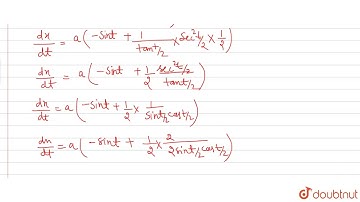 dx/dt = a(-sint + 1/tant/2 × sec²t/2 × 1/2)
dx/dt = a(-sint + 1/2 sec²t/2 / tant/2)
dx/dt = a(-sint + 1/2 × 1/sint/2 cost/2)
dx/dt = a(-sint + 1/2 × 2/2sint/2 cost/2)
doubtnut